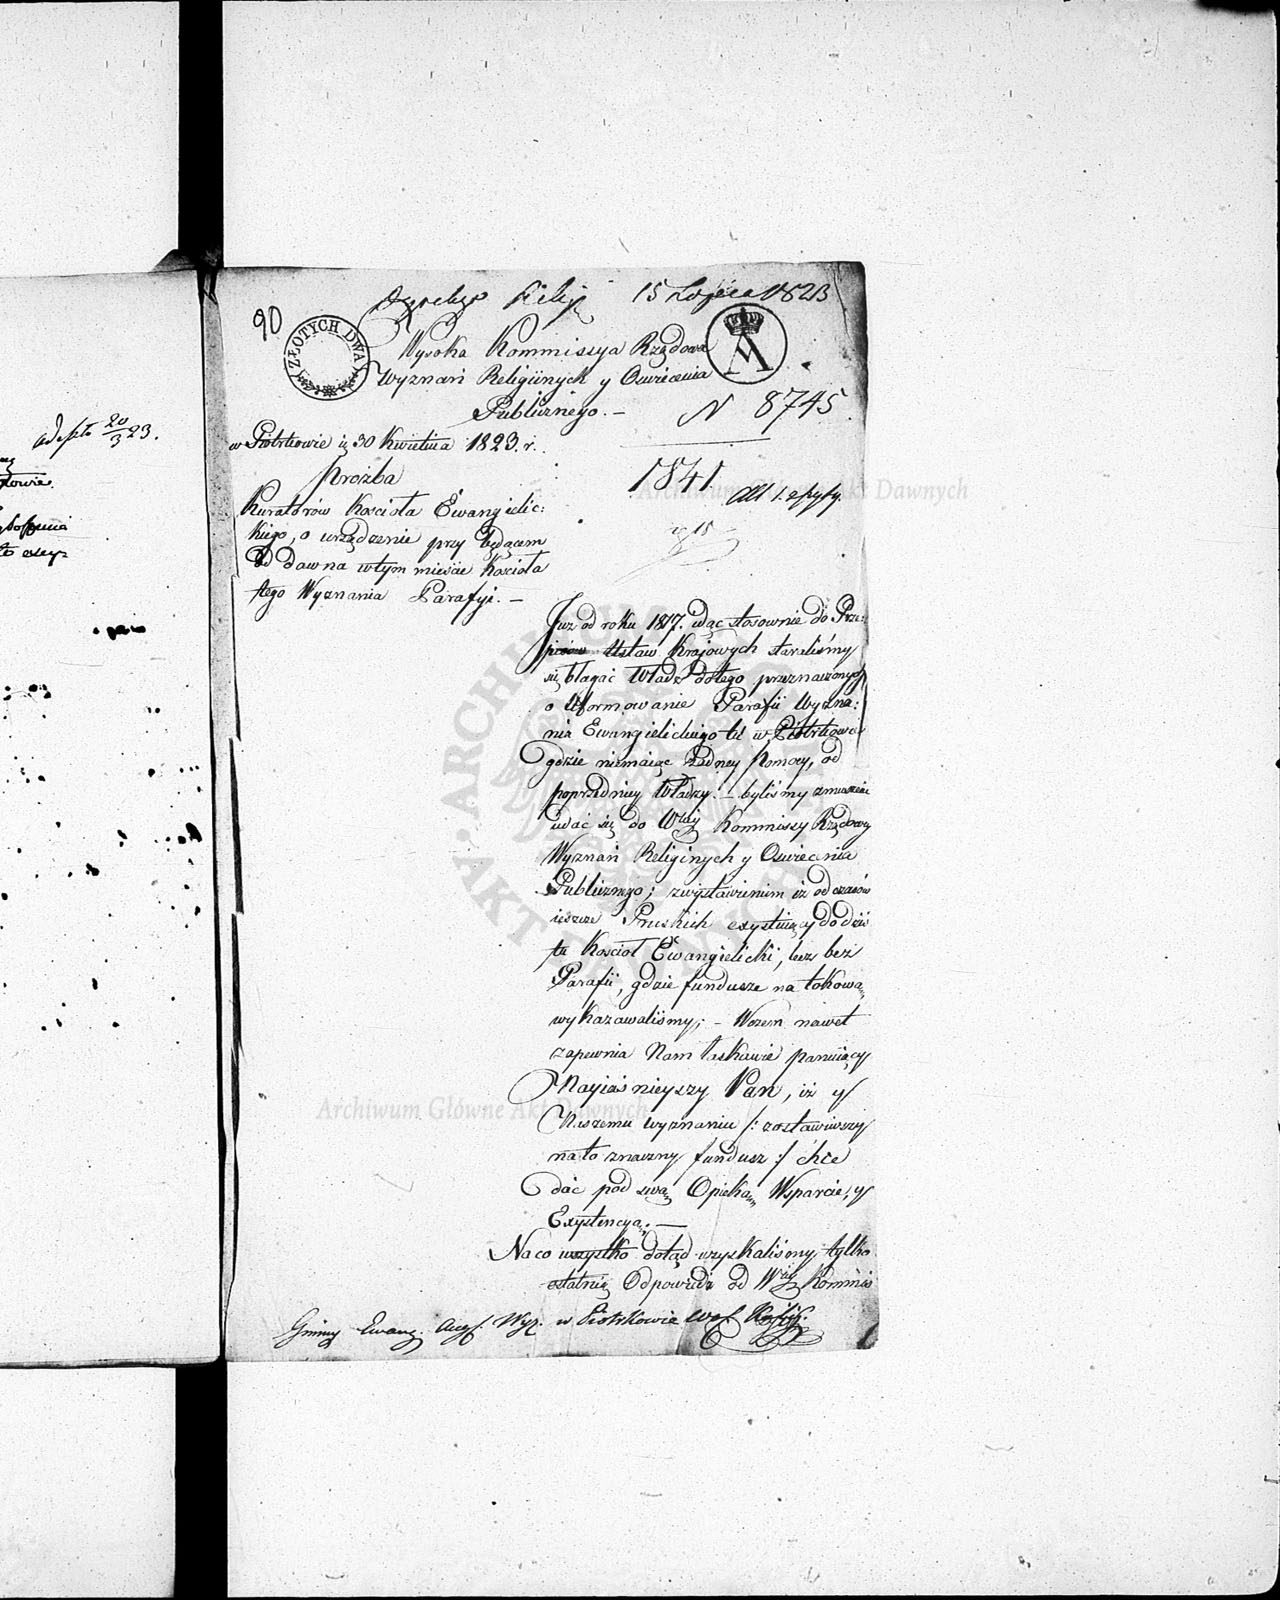 adeszło 20/3 23.
90
15 Lipca 1823
ZŁOTYCH DWA
Wysoka Kommissya Rządowa
Wyznań Religiinych y Oswiecenia
Publicznego. –
N 8745
w Piotrkowie d. 30 Kwietnia 1823. r.
1841
Prozba
Kuratorów Kościoła Ewangielic:
kiego, o urządzenie przy będącem
od dawna w tym mieście Kościoła
tego Wyznania Parafyi. –
Już od roku 1817. udąc stosownie do Prze:
pisów Ustaw Krajowych staraliśmy
się błagać Władz do tego przeznaczonych
o Uformowanie Parafii Wyzna:
nia Ewangielickiego tu w Piotrkowie
gdzie niemaiąc żadney Pomocy, od
poprzedniey Władzy. – byliśmy zmuszeni
udać się do Wney Kommissy Rządowey
Wyznań Religinych y Oswiecenia
Publicznego; z wystawieniem iż od czasów
ieszcze Pruskich exystuiący do dziś
tu Kościoł Ewangielicki, lecz bez
Parafii, gdzie fundusze na to
wykazawaliśmy; – Wozem nawet
zapewnia Nam łaskawie panuiący
Nayiaśnieyszy Pan, iż y
Naszemu wyznaniu /: zostawiwszy
na to znaczny fundusz :/ chce
dać pod swą Opiekę, Wsparcie, y
Exystencyą. —
Na co wszystko dotąd uzyskaliśmy tylko
ostatnią Odpowiedź od Wney Kommis
Gminy Ewang. Augs. Wyz. w Piotrkowie
Archiwum Główne Akt Dawnych
Archiwum Główne Akt Dawnych